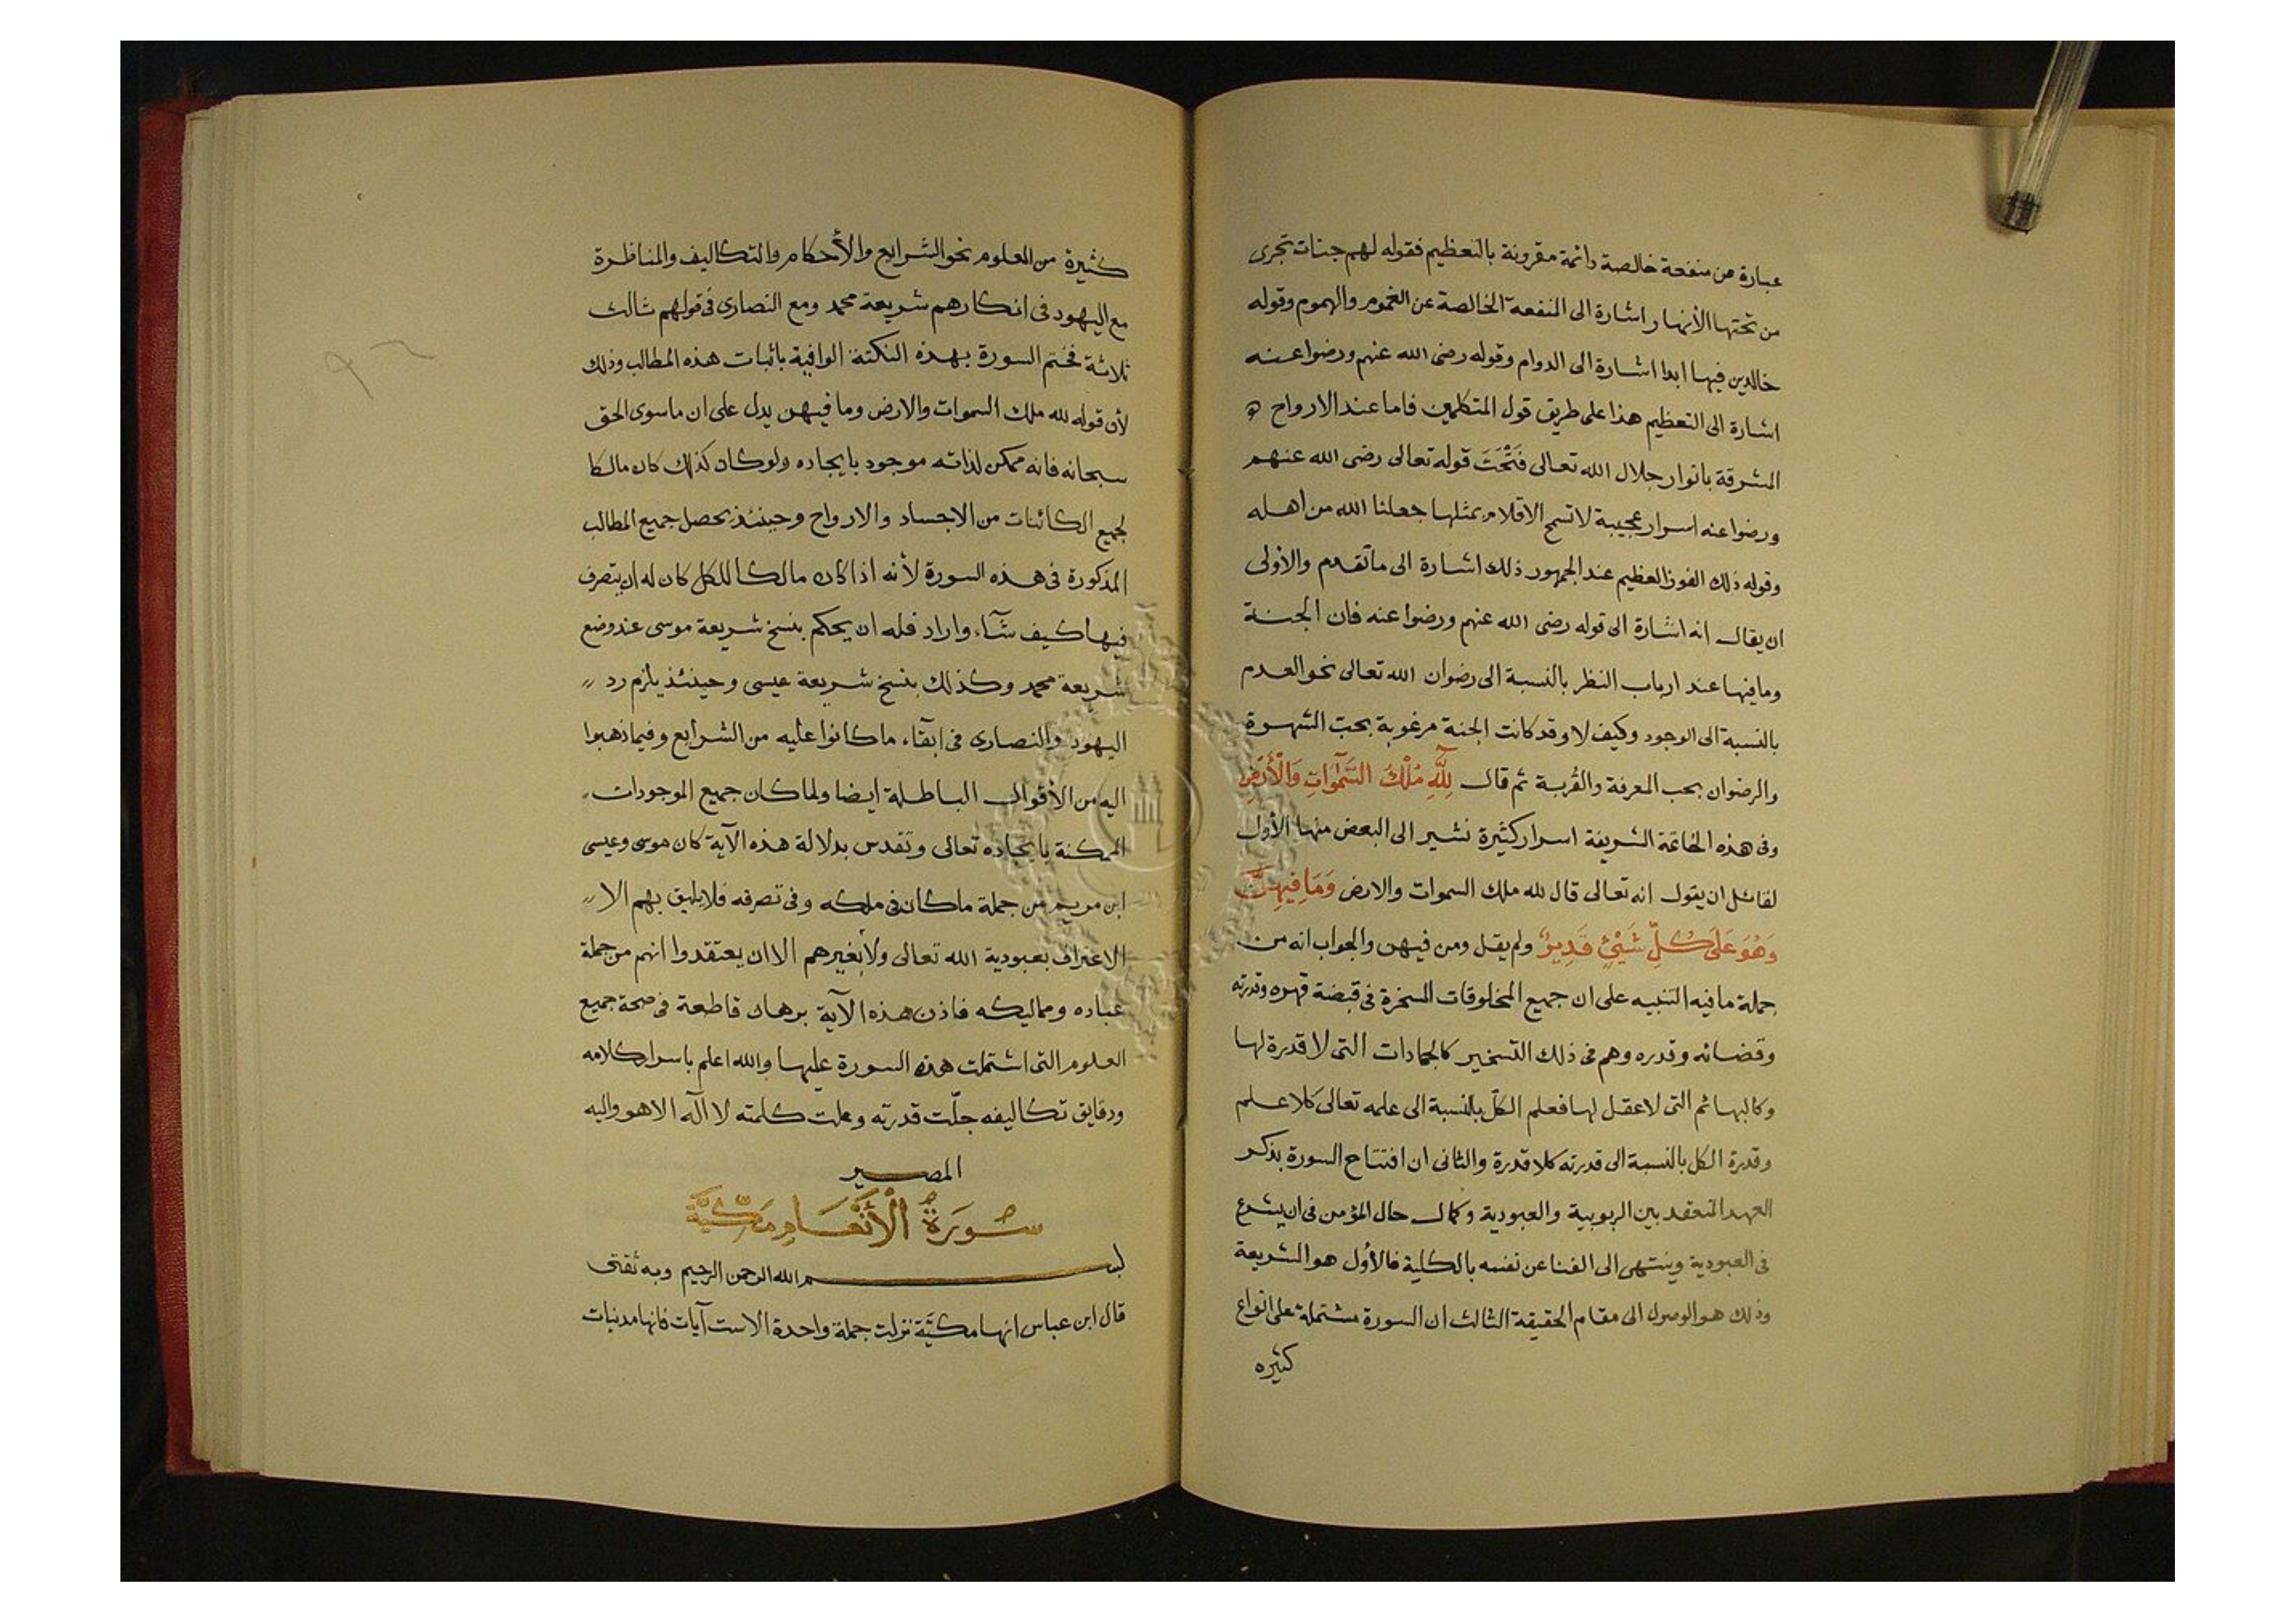 عبارة عن منفعة خالصة دائمة مقرونة بالتعظيم فقوله لهم جنات تجرى
من تحتها الأنهار اشارة الى المنفعة الخالصة عن الغموم والهموم وقوله
خالدين فيها ابدا اشارة الى الدوام وقوله رضى الله عنهم ورضوا عنه
اشارة الى التعظيم هذا على طريق قول المتكلمين فاما عند الارواح
المشرقة بانوار جلال الله تعالى فَتَحْتَ قوله تعالى رضى الله عنهم
ورضوا عنه اسرار عجيبة لا تسمح الاقلام بمثلها جعلنا الله من أهله
وقوله ذلك الفوز العظيم عند الجمهور ذلك اشارة الى ما تقدم والأولى
ان يقال انه اشارة الى قوله رضى الله عنهم ورضوا عنه فان الجنة
وما فيها عند ارباب النظر بالنسبة الى رضوان الله تعالى نحو العدم
بالنسبة الى الوجود وكيف لا وقد كانت الجنة مرغوبة بحب الشهوة
والرضوان بحب المعرفة والقُربة ثم قال لِلَّهِ مُلْكُ السَّمٰوَاتِ وَالْأَرْضِ
وفى هذه الخاتمة الشريفة اسرار كثيرة نشير الى البعض منها الأول
لقائل ان يقول انه تعالى قال لله ملك السموات والارض وَمَا فِيهِنَّ
وَهُوَ عَلَى كُلِّ شَيْئٍ قَدِيرٌ ولم يقل ومن فيهن والجواب انه من
جملة ما فيه التنبيه على ان جميع المخلوقات المسخرة فى قبضة قهره وقدرته
وقضائه وقدره وهم فى ذلك التسخير كالجمادات التى لا قدرة لها
وكالبهائم التى لا عقل لها فعلم الكلّ بالنسبة الى علمه تعالى كلا علم
وقدرة الكل بالنسبة الى قدرته كلا قدرة والثانى ان افتتاح السورة بذكر
العهد المنعقد بين الربوبية والعبودية وكمال حال المؤمن فى ان يشرع
فى العبودية وينتهى الى الفنا عن نفسه بالكلية فالأول هو الشريعة
وذلك هو الوصول الى مقام الحقيقة الثالث ان السورة مشتملة على انواع
كثيره
كثيرة من العلوم نحو الشرايع والأحكام والتكاليف والمناظرة
مع اليهود فى انكارهم شريعة محمد ومع النصارى فى قولهم ثالث
ثلاثة فختم السورة بهذه النكتة الوافية باثبات هذه المطالب وذلك
لأن قوله لله ملك السموات والارض وما فيهن يدل على ان ما سوى الحق
سبحانه فانه ممكن لذاته موجود بايجاده ولو كان كذلك كان مالكا
لجميع الكائنات من الاجساد والارواح وحينئذ يحصل جميع المطالب
المذكورة فى هذه السورة لأنه اذا كان مالكا للكل كان له ان يتصرف
فيها كيف شآء واراد فله ان يحكم بنسخ شريعة موسى عند وضع
شريعة محمد وكذلك بنسخ شريعة عيسى وحينئذ يلزم رد
اليهود والنصارى فى ابقآء ما كانوا عليه من الشرايع وفيما ذهبوا
اليه من الأقوال الباطلة ايضا ولما كان جميع الموجودات
الممكنة بايجاده تعالى وتقدس بدلالة هذه الآية كان موسى وعيسى
ابن مريم من جملة ما كان فى ملكه وفى تصرفه فلا يليق بهم الا
الاعتراف بعبودية الله تعالى ولا بغيرهم الا ان يعتقدوا انهم من جملة
عباده ومماليكه فاذن هذه الآية برهان قاطعة فى صحة جميع
العلوم التى اشتملت هذه السورة عليها والله اعلم باسرار كلامه
ودقايق تكاليفه جلّت قدرته وعلت كلمته لا اله الا هو واليه
المصير
سُورَةُ الْأَنْعَامِ مَكِّيَّة
بسم الله الرحمن الرحيم وبه ثقتى
قال ابن عباس انها مكيّة نزلت جملة واحدة الا ست آيات فانها مدنيات